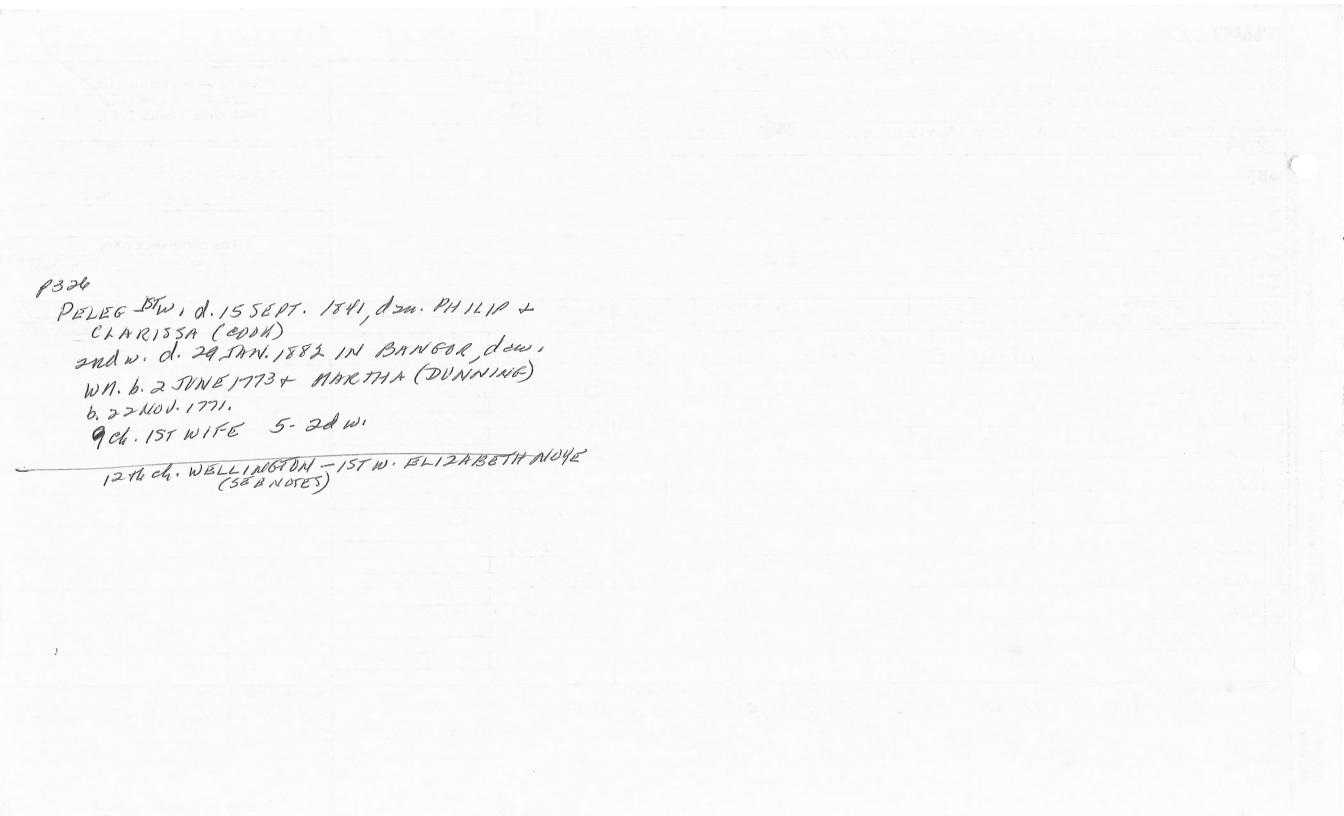 P326
PELEG 1ST W. d. 15 SEPT. 1841, dau. PHILIP +
CLARISSA (COOK)
2nd w. d. 29 JAN. 1882 IN BANGOR, dau.
WM. b. 2 JUNE 1773 + MARTHA (DUNNING)
b. 22 NOV. 1771.
9 ch. 1ST WIFE 5 - 2d w.
12th ch. WELLINGTON - 1ST W. ELIZABETH NOYE
(SEB NOTES)